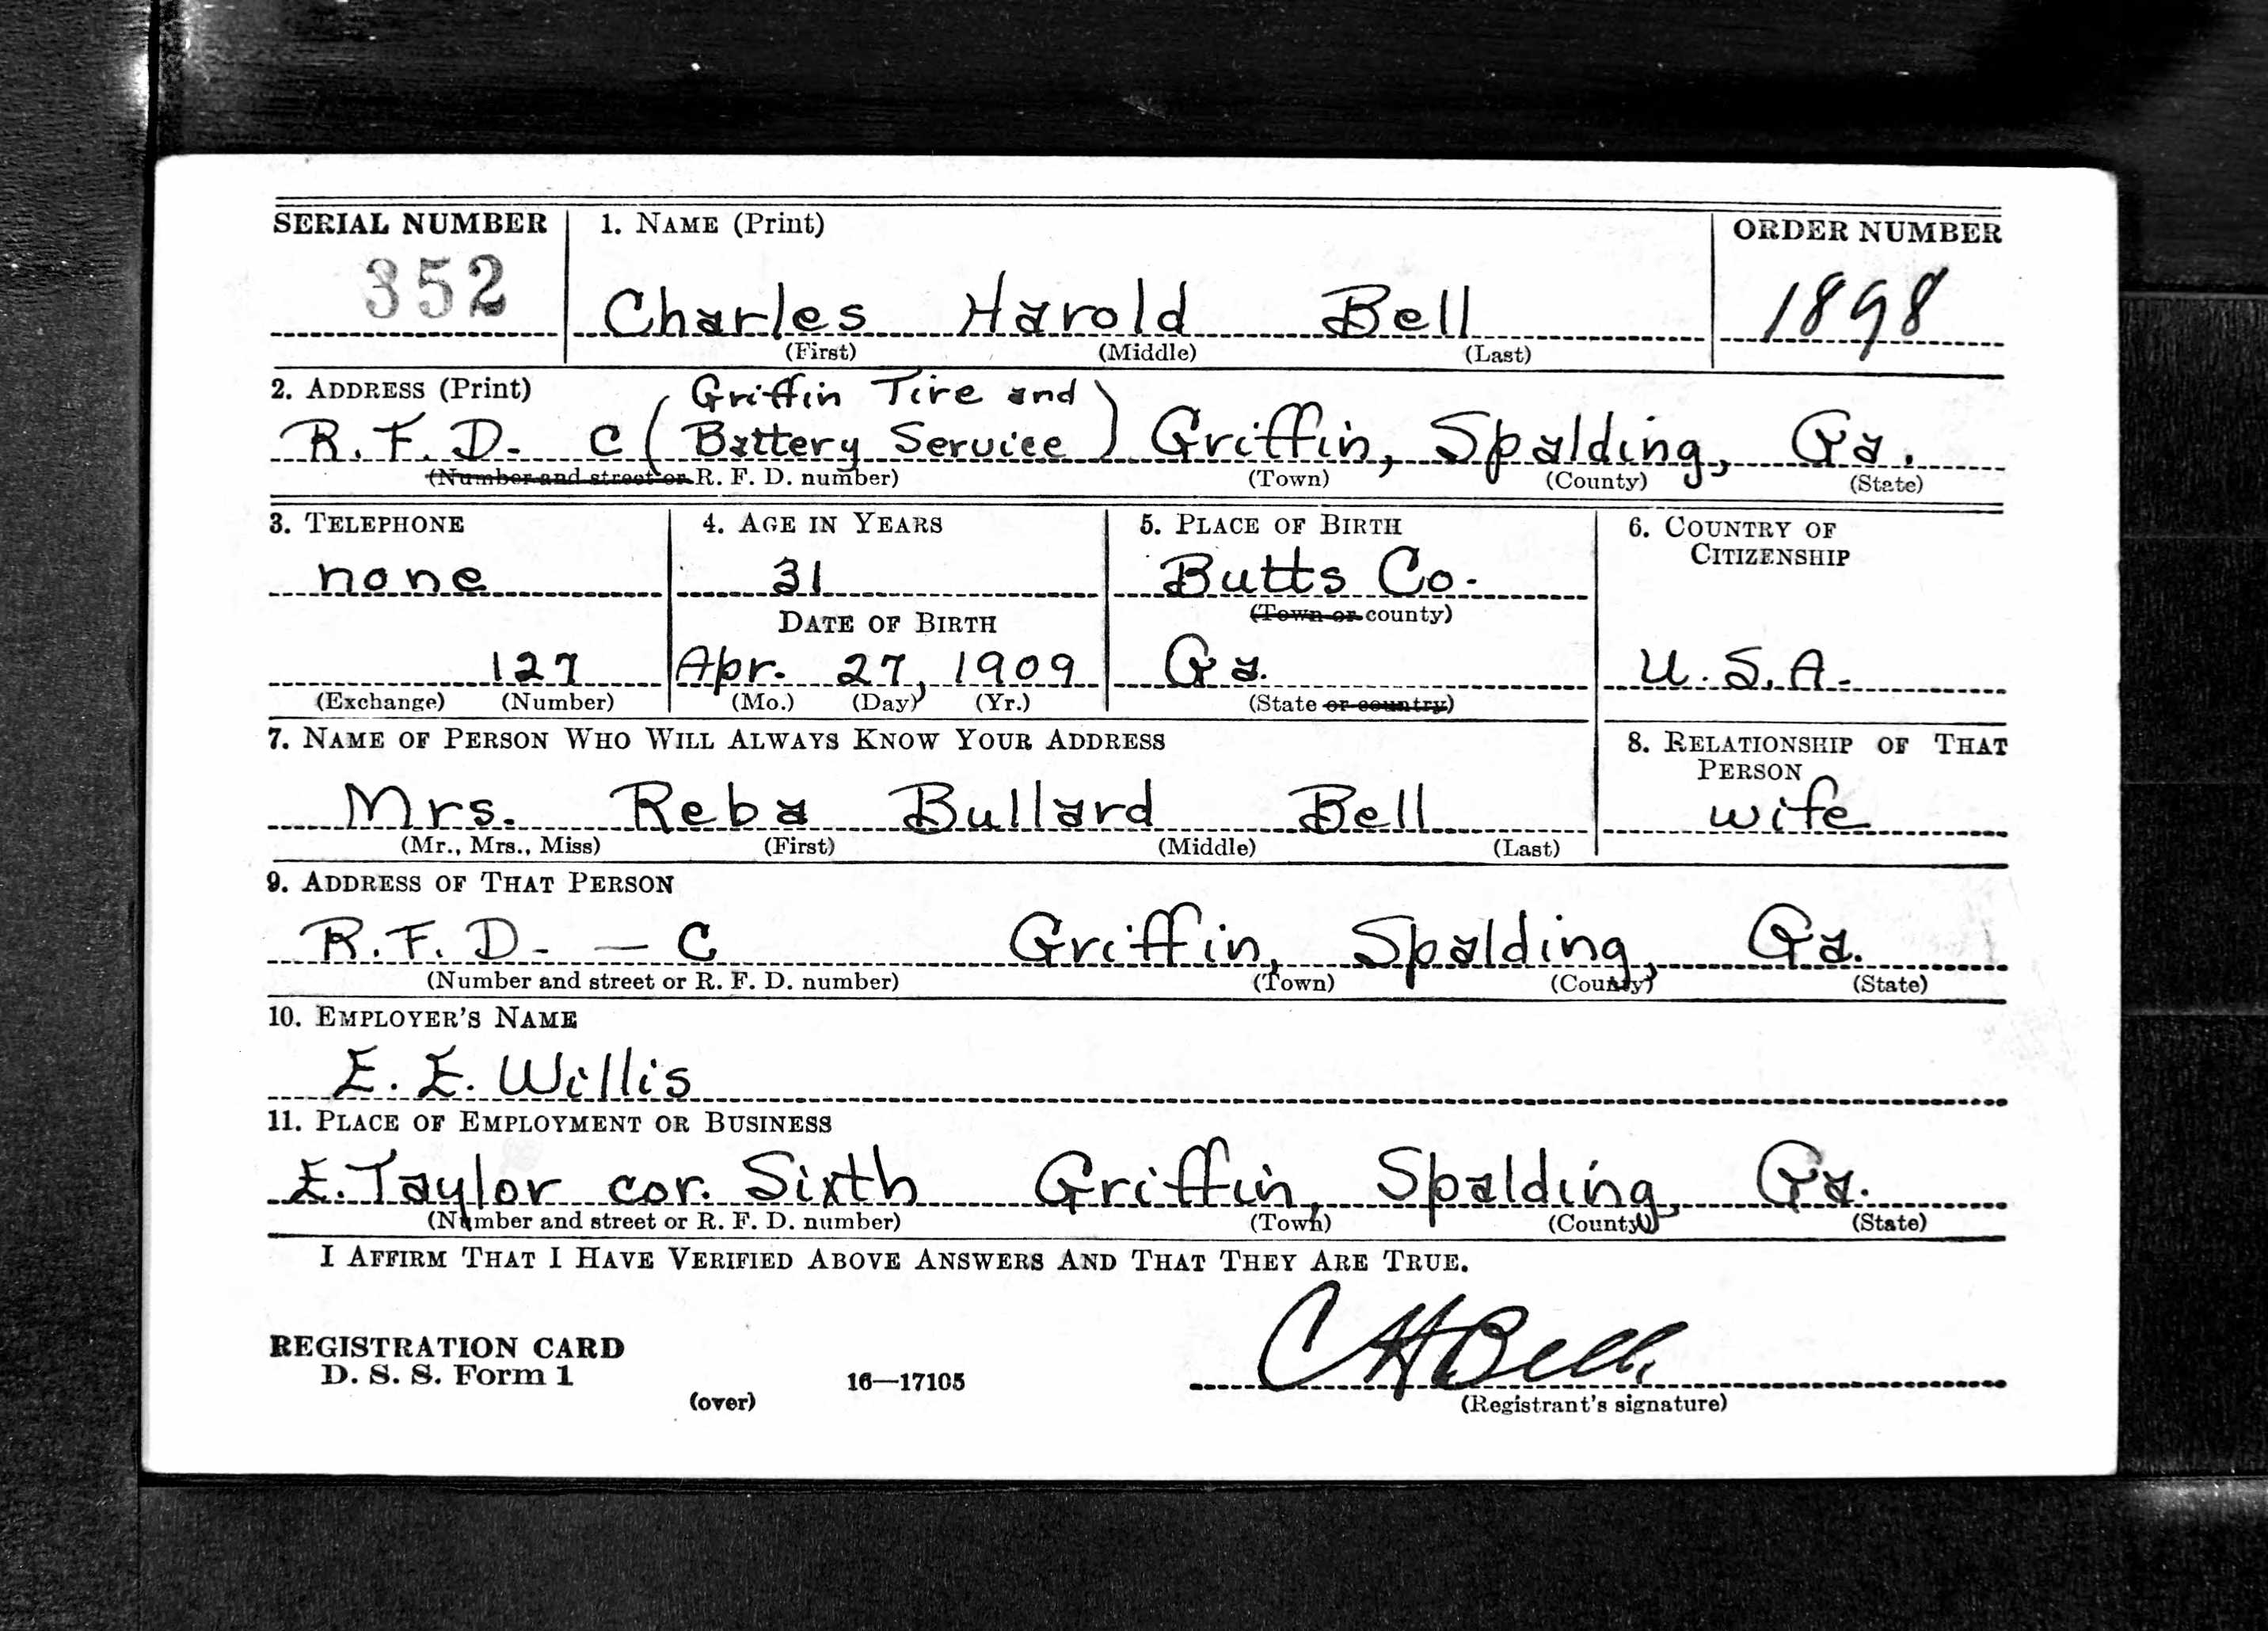 SERIAL NUMBER 1. NAME (Print) ORDER NUMBER
352 Charles Harold Bell 1898
(First) (Middle) (Last)
2. ADDRESS (Print) Griffin Tire and
R. F. D. C ( Battery Service ) Griffin, Spalding, Ga.
(Number and street or R. F. D. number) (Town) (County) (State)
3. TELEPHONE 4. AGE IN YEARS 5. PLACE OF BIRTH 6. COUNTRY OF
CITIZENSHIP
none 31 Butts Co.
DATE OF BIRTH (Town or county)
127 Apr. 27, 1909 Ga. U.S.A.
(Exchange) (Number) (Mo.) (Day) (Yr.) (State or country)
7. NAME OF PERSON WHO WILL ALWAYS KNOW YOUR ADDRESS 8. RELATIONSHIP OF THAT
PERSON
Mrs. Reba Bullard Bell wife
(Mr., Mrs., Miss) (First) (Middle) (Last)
9. ADDRESS OF THAT PERSON
R.F.D. — C Griffin, Spalding, Ga.
(Number and street or R. F. D. number) (Town) (County) (State)
10. EMPLOYER'S NAME
E. E. Willis
11. PLACE OF EMPLOYMENT OR BUSINESS
E. Taylor cor. Sixth Griffin, Spalding, Ga.
(Number and street or R. F. D. number) (Town) (County) (State)
I AFFIRM THAT I HAVE VERIFIED ABOVE ANSWERS AND THAT THEY ARE TRUE.
REGISTRATION CARD
D. S. S. Form 1 16—17105 C H Bell
(over) (Registrant's signature)